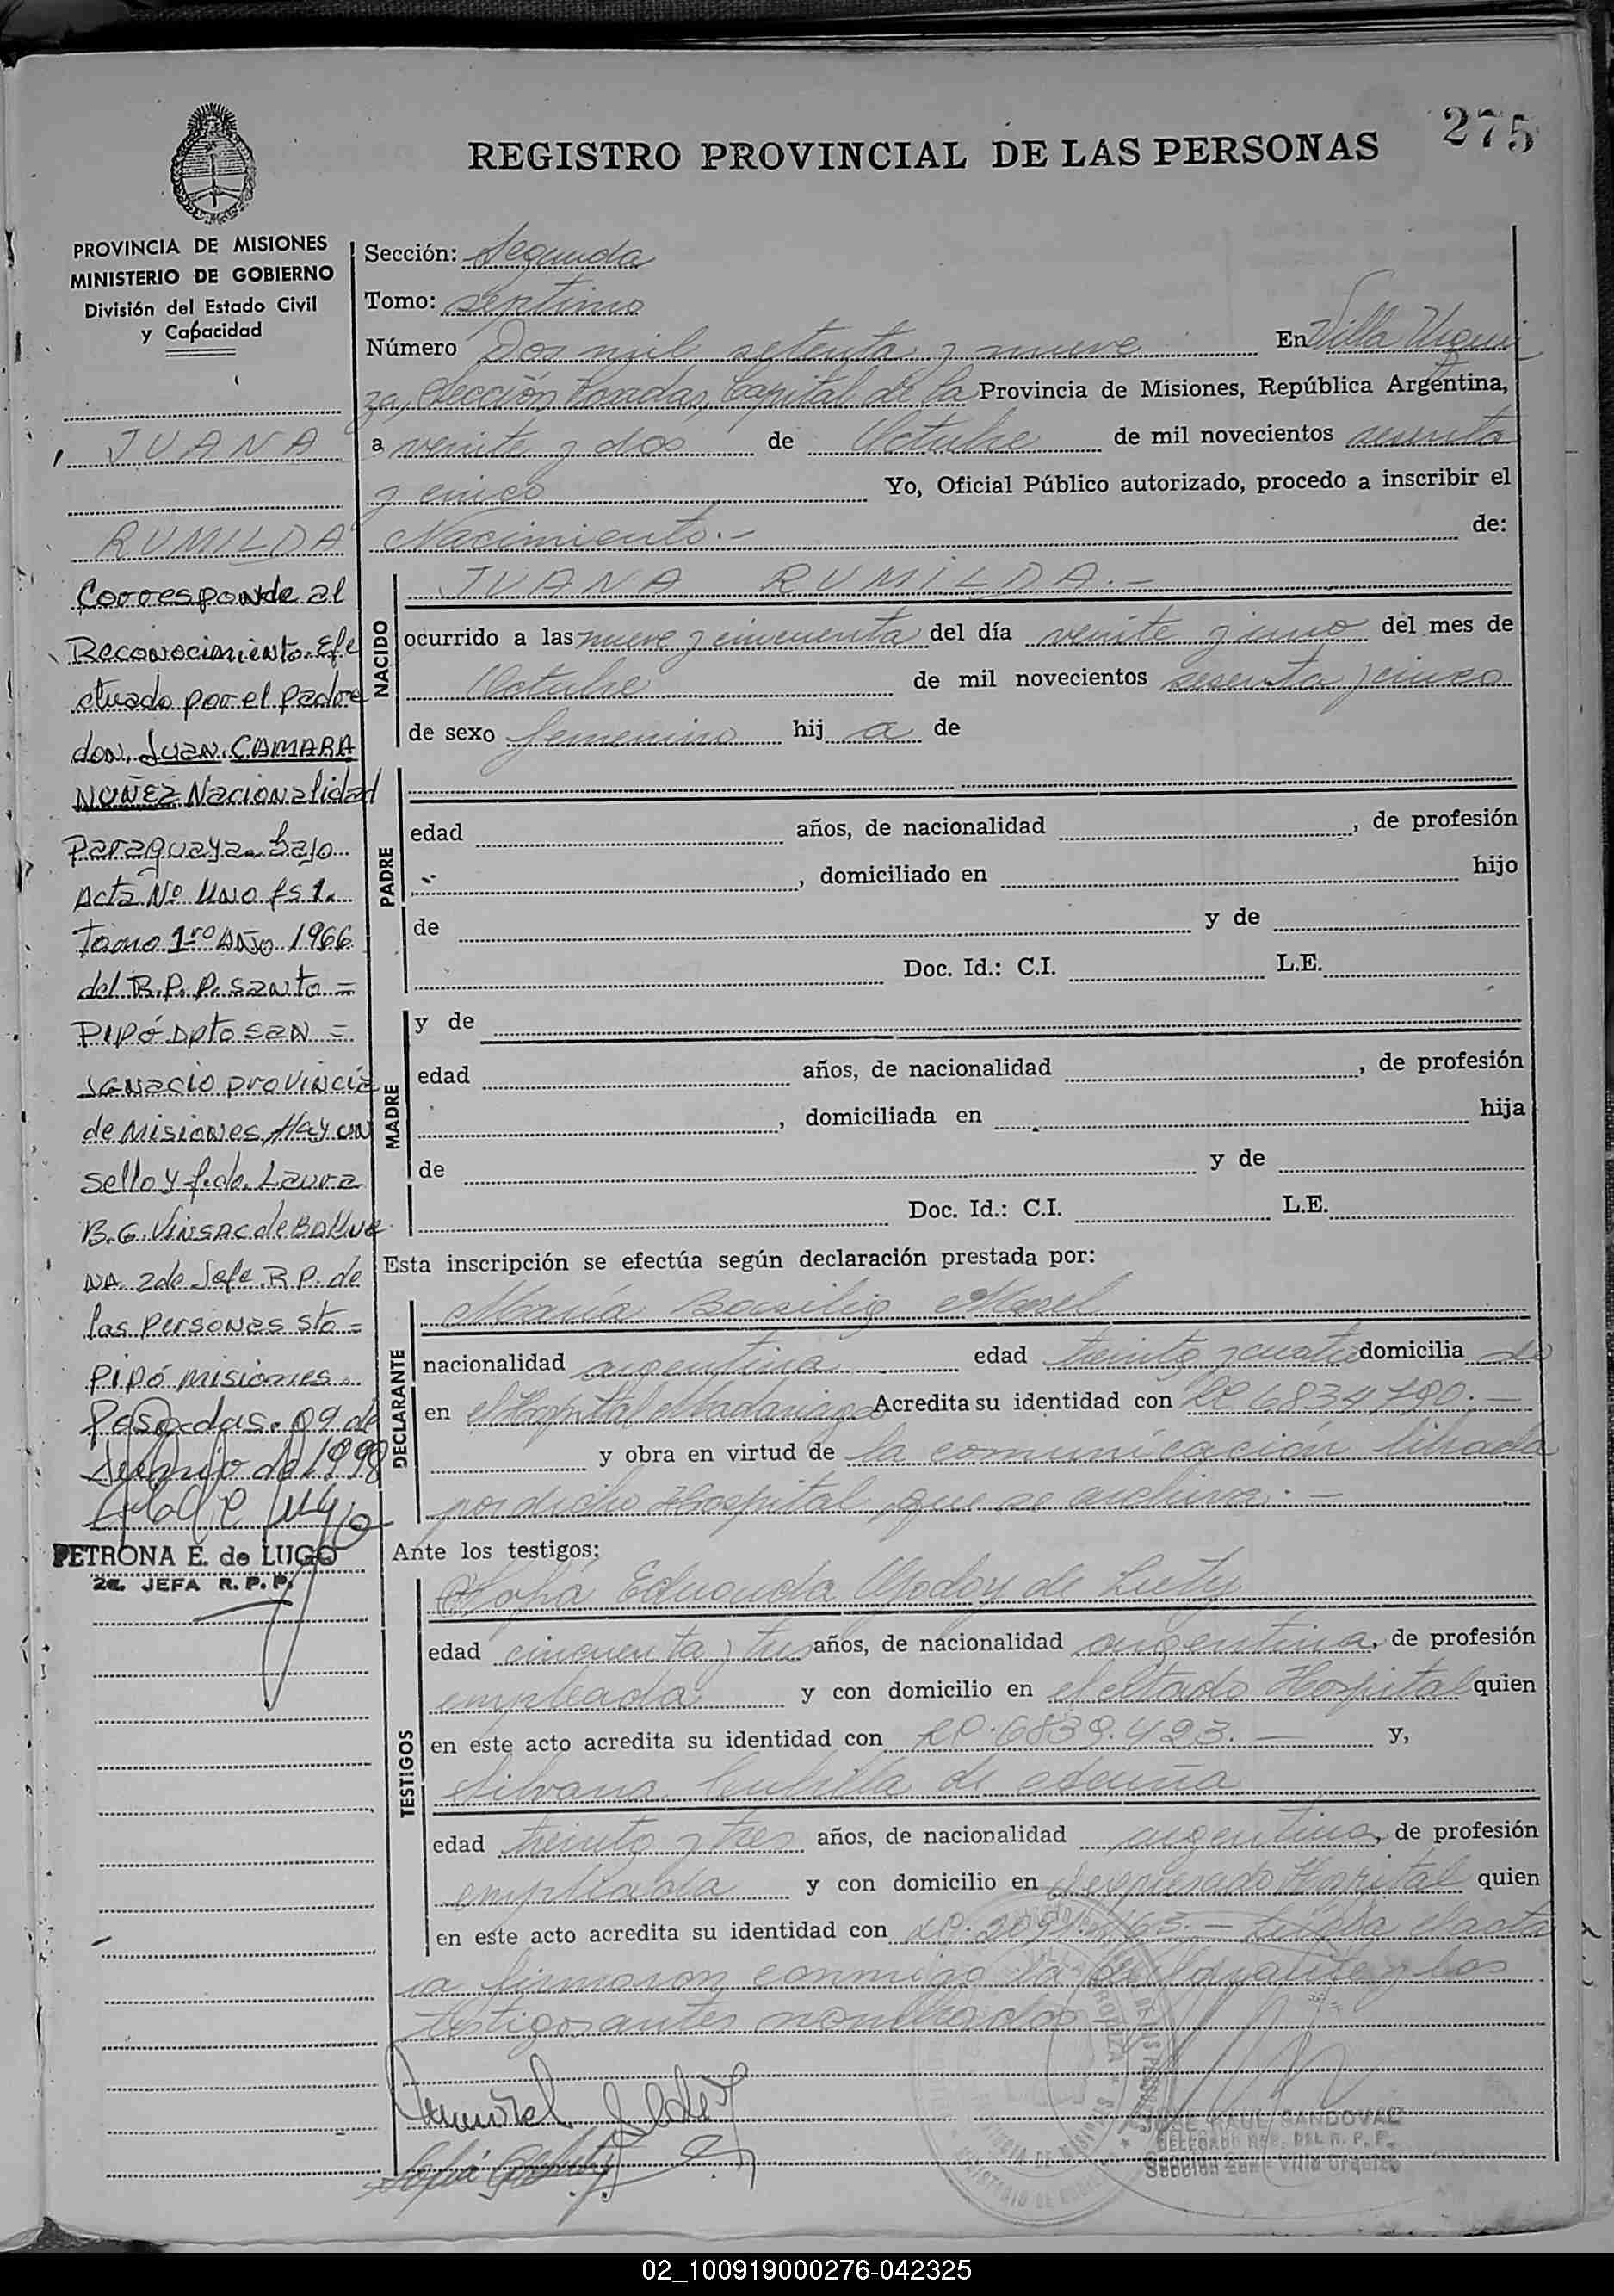 275
REGISTRO PROVINCIAL DE LAS PERSONAS
PROVINCIA DE MISIONES
MINISTERIO DE GOBIERNO
División del Estado Civil
y Capacidad
JUANA
RUMILDA
Corresponde al
Reconocimiento Efe
ctuado por el padre
don Juan CAMARA
NUÑEZ Nacionalidad
Paraguaya bajo
Acta Nº Uno fs 1.
Tomo 1ro Año 1966
del R.P.P. Santo =
PIPÓ Dpto San =
Ignacio provincia
de Misiones, Hay un
sello y f. de. Laura
B.G. Vinsac de
NA 2do Jefe R.P. de
las Personas Sto =
Pipó misiones.
Posadas. 09 de
Junio de 1998
PETRONA E. de LUGO
2a. JEFA R.P.P.
Sección: Segunda
Tomo: Séptimo
Número Dos mil setenta y nueve En Villa Urqui
za, Sección Posadas, Capital de la Provincia de Misiones, República Argentina,
a veinte y dos de Octubre de mil novecientos sesenta
y cinco Yo, Oficial Público autorizado, procedo a inscribir el
Nacimiento.- de:
NACIDO
JUANA RUMILDA.-
ocurrido a las nueve y cincuenta del día veinte y uno del mes de
Octubre de mil novecientos sesenta y cinco
de sexo femenino hij a de
PADRE
edad años, de nacionalidad , de profesión
, domiciliado en hijo
de y de
Doc. Id.: C.I. L.E.
MADRE
y de
edad años, de nacionalidad , de profesión
, domiciliada en hija
de y de
Doc. Id.: C.I. L.E.
Esta inscripción se efectúa según declaración prestada por:
DECLARANTE
María Morel
nacionalidad argentina edad treinta y cuatro domicilia da
en el Hospital Madariaga Acredita su identidad con LC 6834790.-
y obra en virtud de la comunicación librada
por dicho Hospital que se archiva.-
Ante los testigos:
TESTIGOS
Sofía Eduarda Godoy de
edad cincuenta y tres años, de nacionalidad argentina, de profesión
empleada y con domicilio en el citado Hospital quien
en este acto acredita su identidad con LC. 6839.423.- y,
Silvana Cubilla de Acuña
edad treinta y tres años, de nacionalidad argentina, de profesión
empleada y con domicilio en el expresado Hospital quien
en este acto acredita su identidad con LC. Leída el acta
la firmaron conmigo la declarante y los
testigos antes nombrados
JOSE RAUL SANDOVAL
Sección 2da - Villa Urquiza
02_100919000276-042325